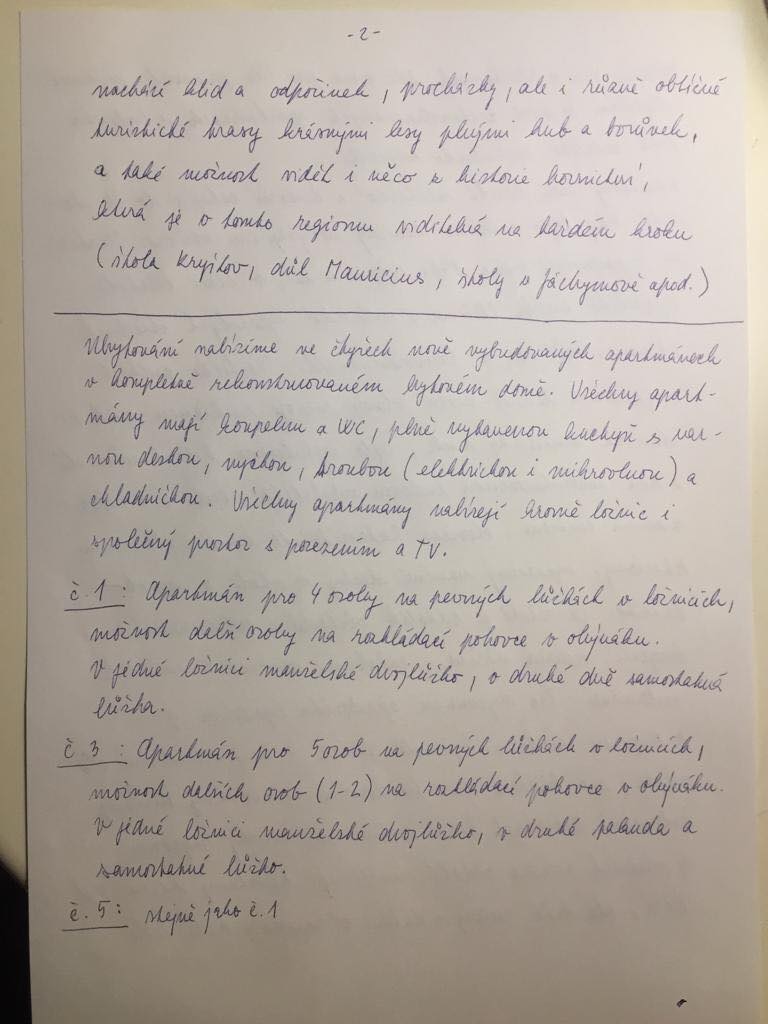 -2-
nachází klid a odpočinek, procházky, ale i různě obtížné
turistické trasy krásnými lesy plnými hub a borůvek,
a také možnost vidět i něco z historie hornictví,
která je v tomto regionu viditelná na každém kroku
(štola Kryštov, důl Mauricius, štoly v Jáchymově apod.)
Ubytování nabízíme ve čtyřech nově vybudovaných apartmánech
v kompletně rekonstruovaném bytovém domě. Všechny apart-
mány mají koupelnu a WC, plně vybavenou kuchyň s var-
nou deskou, myčkou, troubou (elektrickou i mikrovlnou) a
chladničkou. Všechny apartmány nabízejí kromě ložnic i
společný prostor s posezením a TV.
č.1: Apartmán pro 4 osoby na pevných lůžkách v ložnicích,
možnost další osoby na rozkládací pohovce v obýváku.
V jedné ložnici manželské dvojlůžko, v druhé dvě samostatná
lůžka.
č.3: Apartmán pro 5 osob na pevných lůžkách v ložnicích,
možnost dalších osob (1-2) na rozkládací pohovce v obýváku.
V jedné ložnici manželské dvojlůžko, v druhé palanda a
samostatné lůžko.
č.5: stejně jako č.1